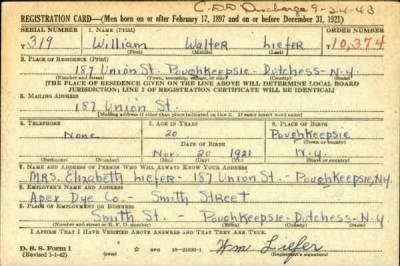 C.D.D Discharge 9-24-43
REGISTRATION CARD—(Men born on or after February 17, 1897 and on or before December 31, 1921)
SERIAL NUMBER 1. NAME (Print) ORDER NUMBER
V 319 William Walter Liefer 10,374
(First) (Middle) (Last)
2. PLACE OF RESIDENCE (Print)
187 Union St. Poughkeepsie - Dutchess - N.Y.
(Number and street) (Town, township, village, or city) (County) (State)
[THE PLACE OF RESIDENCE GIVEN ON THE LINE ABOVE WILL DETERMINE LOCAL BOARD
JURISDICTION; LINE 2 OF REGISTRATION CERTIFICATE WILL BE IDENTICAL]
3. MAILING ADDRESS
187 Union St.
[Mailing address if other than place indicated on line 2. If same insert word same]
4. TELEPHONE 5. AGE IN YEARS 6. PLACE OF BIRTH
None 20 Poughkeepsie
DATE OF BIRTH (Town or county)
Nov. 20 1921 N.Y.
(Mo.) (Day) (Yr.) (State or country)
7. NAME AND ADDRESS OF PERSON WHO WILL ALWAYS KNOW YOUR ADDRESS
MRS. Elizabeth Liefer - 187 Union St. - Poughkeepsie, N.Y.
8. EMPLOYER'S NAME AND ADDRESS
Apex Dye Co. - Smith Street
9. PLACE OF EMPLOYMENT OR BUSINESS
Smith St. - Poughkeepsie - Dutchess - N.Y.
(Number and street or R. F. D. number) (Town) (County) (State)
I AFFIRM THAT I HAVE VERIFIED ABOVE ANSWERS AND THAT THEY ARE TRUE.
D. S. S. Form 1
(Revised 1-1-42) GPO Wm Liefer
(Registrant's signature)